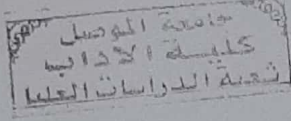 جامعة الموصل
كلية الاداب
شعبة الدراسات العليا